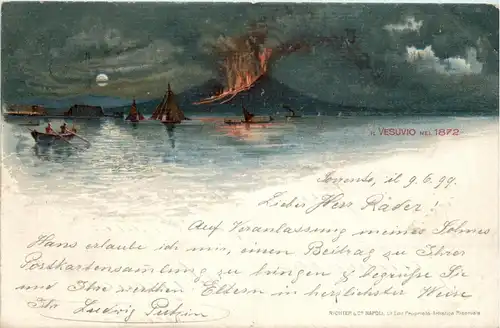 IL VESUVIO NEL 1872.
Sorrento, il 9.6.99.
Lieber Herr Räder!
Auf Veranlassung meines Sohnes
Hans erlaube ich mir, einen Beitrag zu Ihrer
Postkartensammlung zu bringen & begrüße Sie
und Ihre werthen Eltern in herzlichster Weise
Ihr Ludwig
RICHTER & Co. NAPOLI,